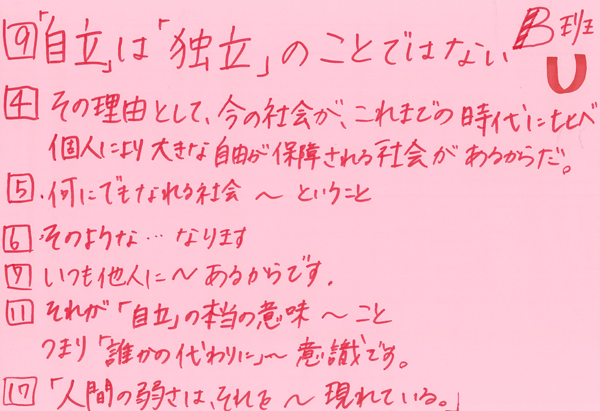 B班
U
9 「自立」は「独立」のことではない
4 その理由として、今の社会が、これまでの時代にもとべ
個人により大きな自由が保障される社会があるからだ。
5 ・何にでもなれる社会 〜 ということ
6 ・そのような… なります
7 いつも他人に〜あるからです。
11 それが「自立」の本当の意味 〜 こと
つまり「誰かの代わりに」〜 意識です。
17 「人間の弱さは、それを 〜 現れている。」